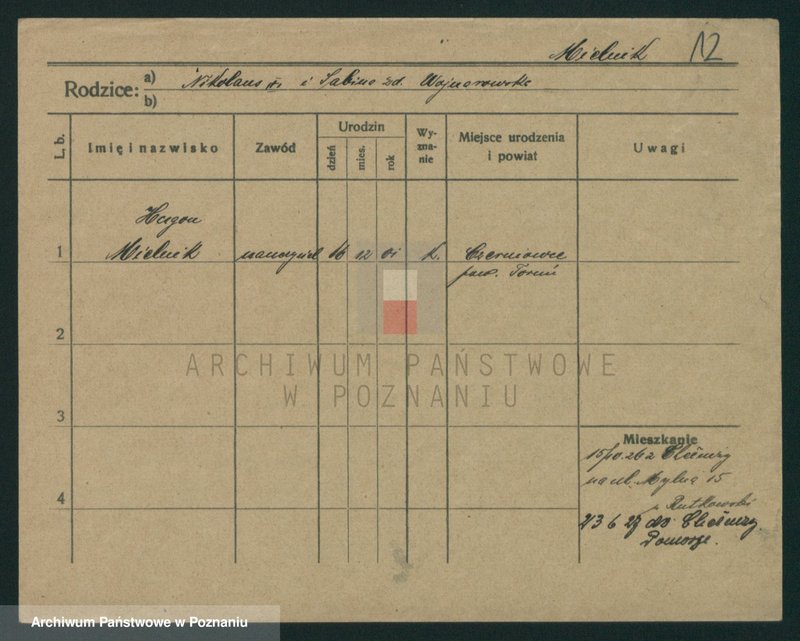 Mielnik 12
Rodzice: a) Nikolaus i Sabina zd. Wojnarowska
b)
L. b.
Imię i nazwisko
Zawód
Urodzin
dzień
mies.
rok
Wy-
zna-
nie
Miejsce urodzenia
i powiat
Uwagi
Hugon
1 Mielnik nauczyciel 16 12 01 k. Czerniewice
pow. Toruń
2
ARCHIWUM PAŃSTWOWE
W POZNANIU
3
Mieszkanie
15/10.26 z Chełmży
na ul. Mylną 15
p. Rutkowski
4
23 6 27 do Chełmży
Pomorze.
Archiwum Państwowe w Poznaniu